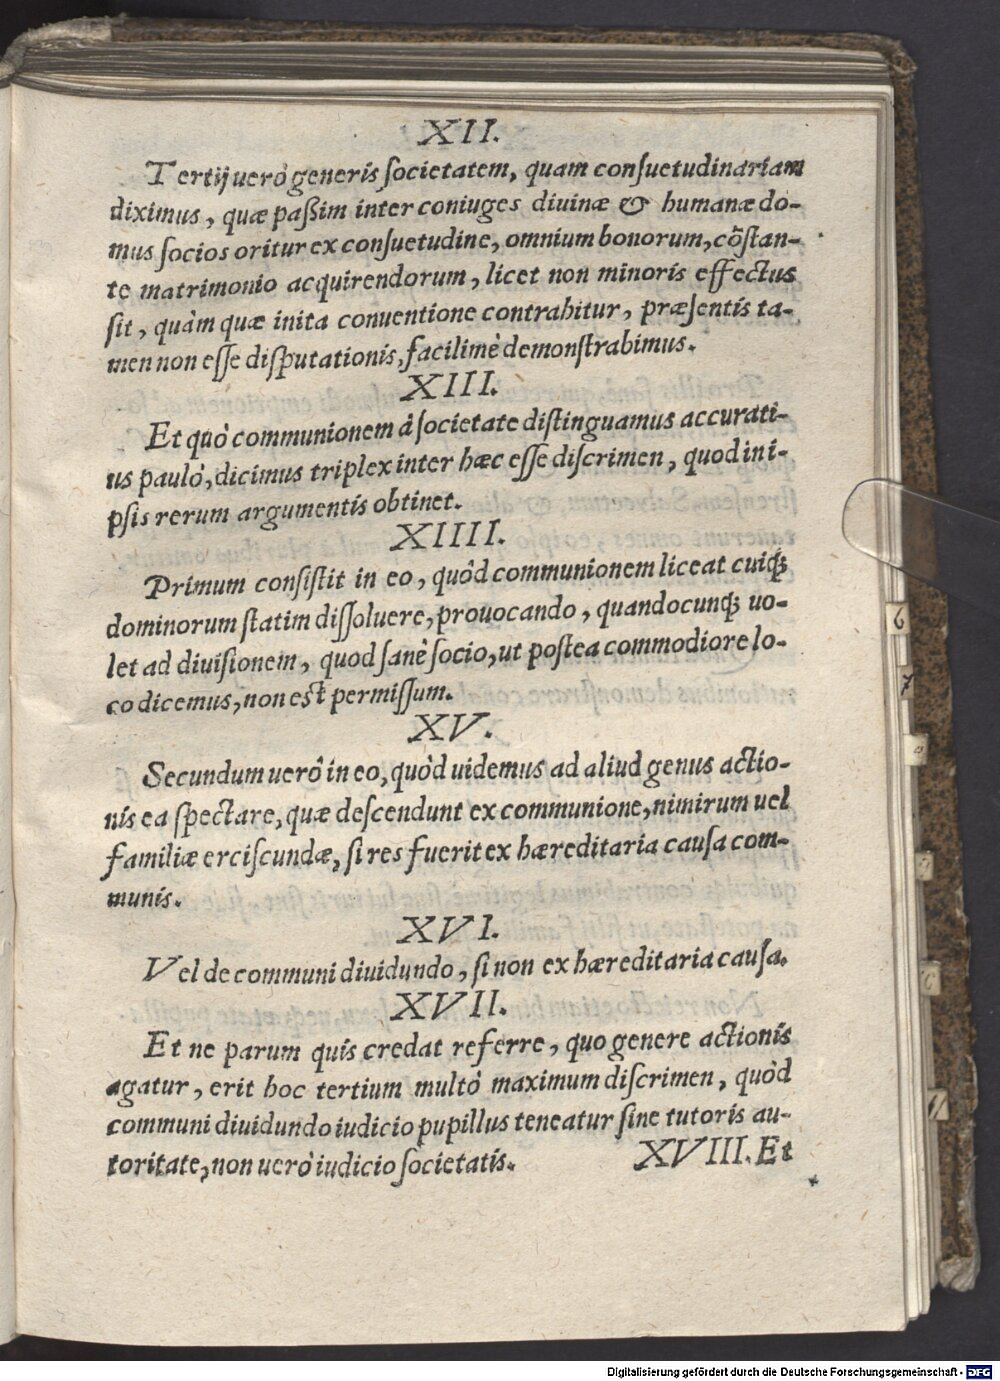 XII.
Tertij uerò generis societatem, quam consuetudinariam
diximus, quæ paßim inter coniuges diuinæ & humanæ do-
mus socios oritur ex consuetudine, omnium bonorum, cõstan-
te matrimonio acquirendorum, licet non minoris effectus
sit, quàm quæ inita conuentione contrahitur, præsentis ta-
men non esse disputationis, facilimè demonstrabimus.
XIII.
Et quò communionem à societate distinguamus accurati-
us paulò, dicimus triplex inter hæc esse discrimen, quod in i-
psis rerum argumentis obtinet.
XIIII.
Primum consistit in eo, quòd communionem liceat cuiq;
dominorum statim dissoluere, prouocando, quandocunq; uo-
let ad diuisionem, quod sanè socio, ut postea commodiore lo-
co dicemus, non est permissum.
XV.
Secundum uerò in eo, quòd uidemus ad aliud genus actio-
nis ea spectare, quæ descendunt ex communione, nimirum uel
familiæ erciscundæ, si res fuerit ex hæreditaria causa com-
munis.
XVI.
Vel de communi diuidundo, si non ex hæreditaria causa.
XVII.
Et ne parum quis credat referre, quo genere actionis
agatur, erit hoc tertium multò maximum discrimen, quòd
communi diuidundo iudicio pupillus teneatur sine tutoris au-
toritate, non uerò iudicio societatis.
XVIII. Et
6
7
Digitalisierung gefördert durch die Deutsche Forschungsgemeinschaft - DFG